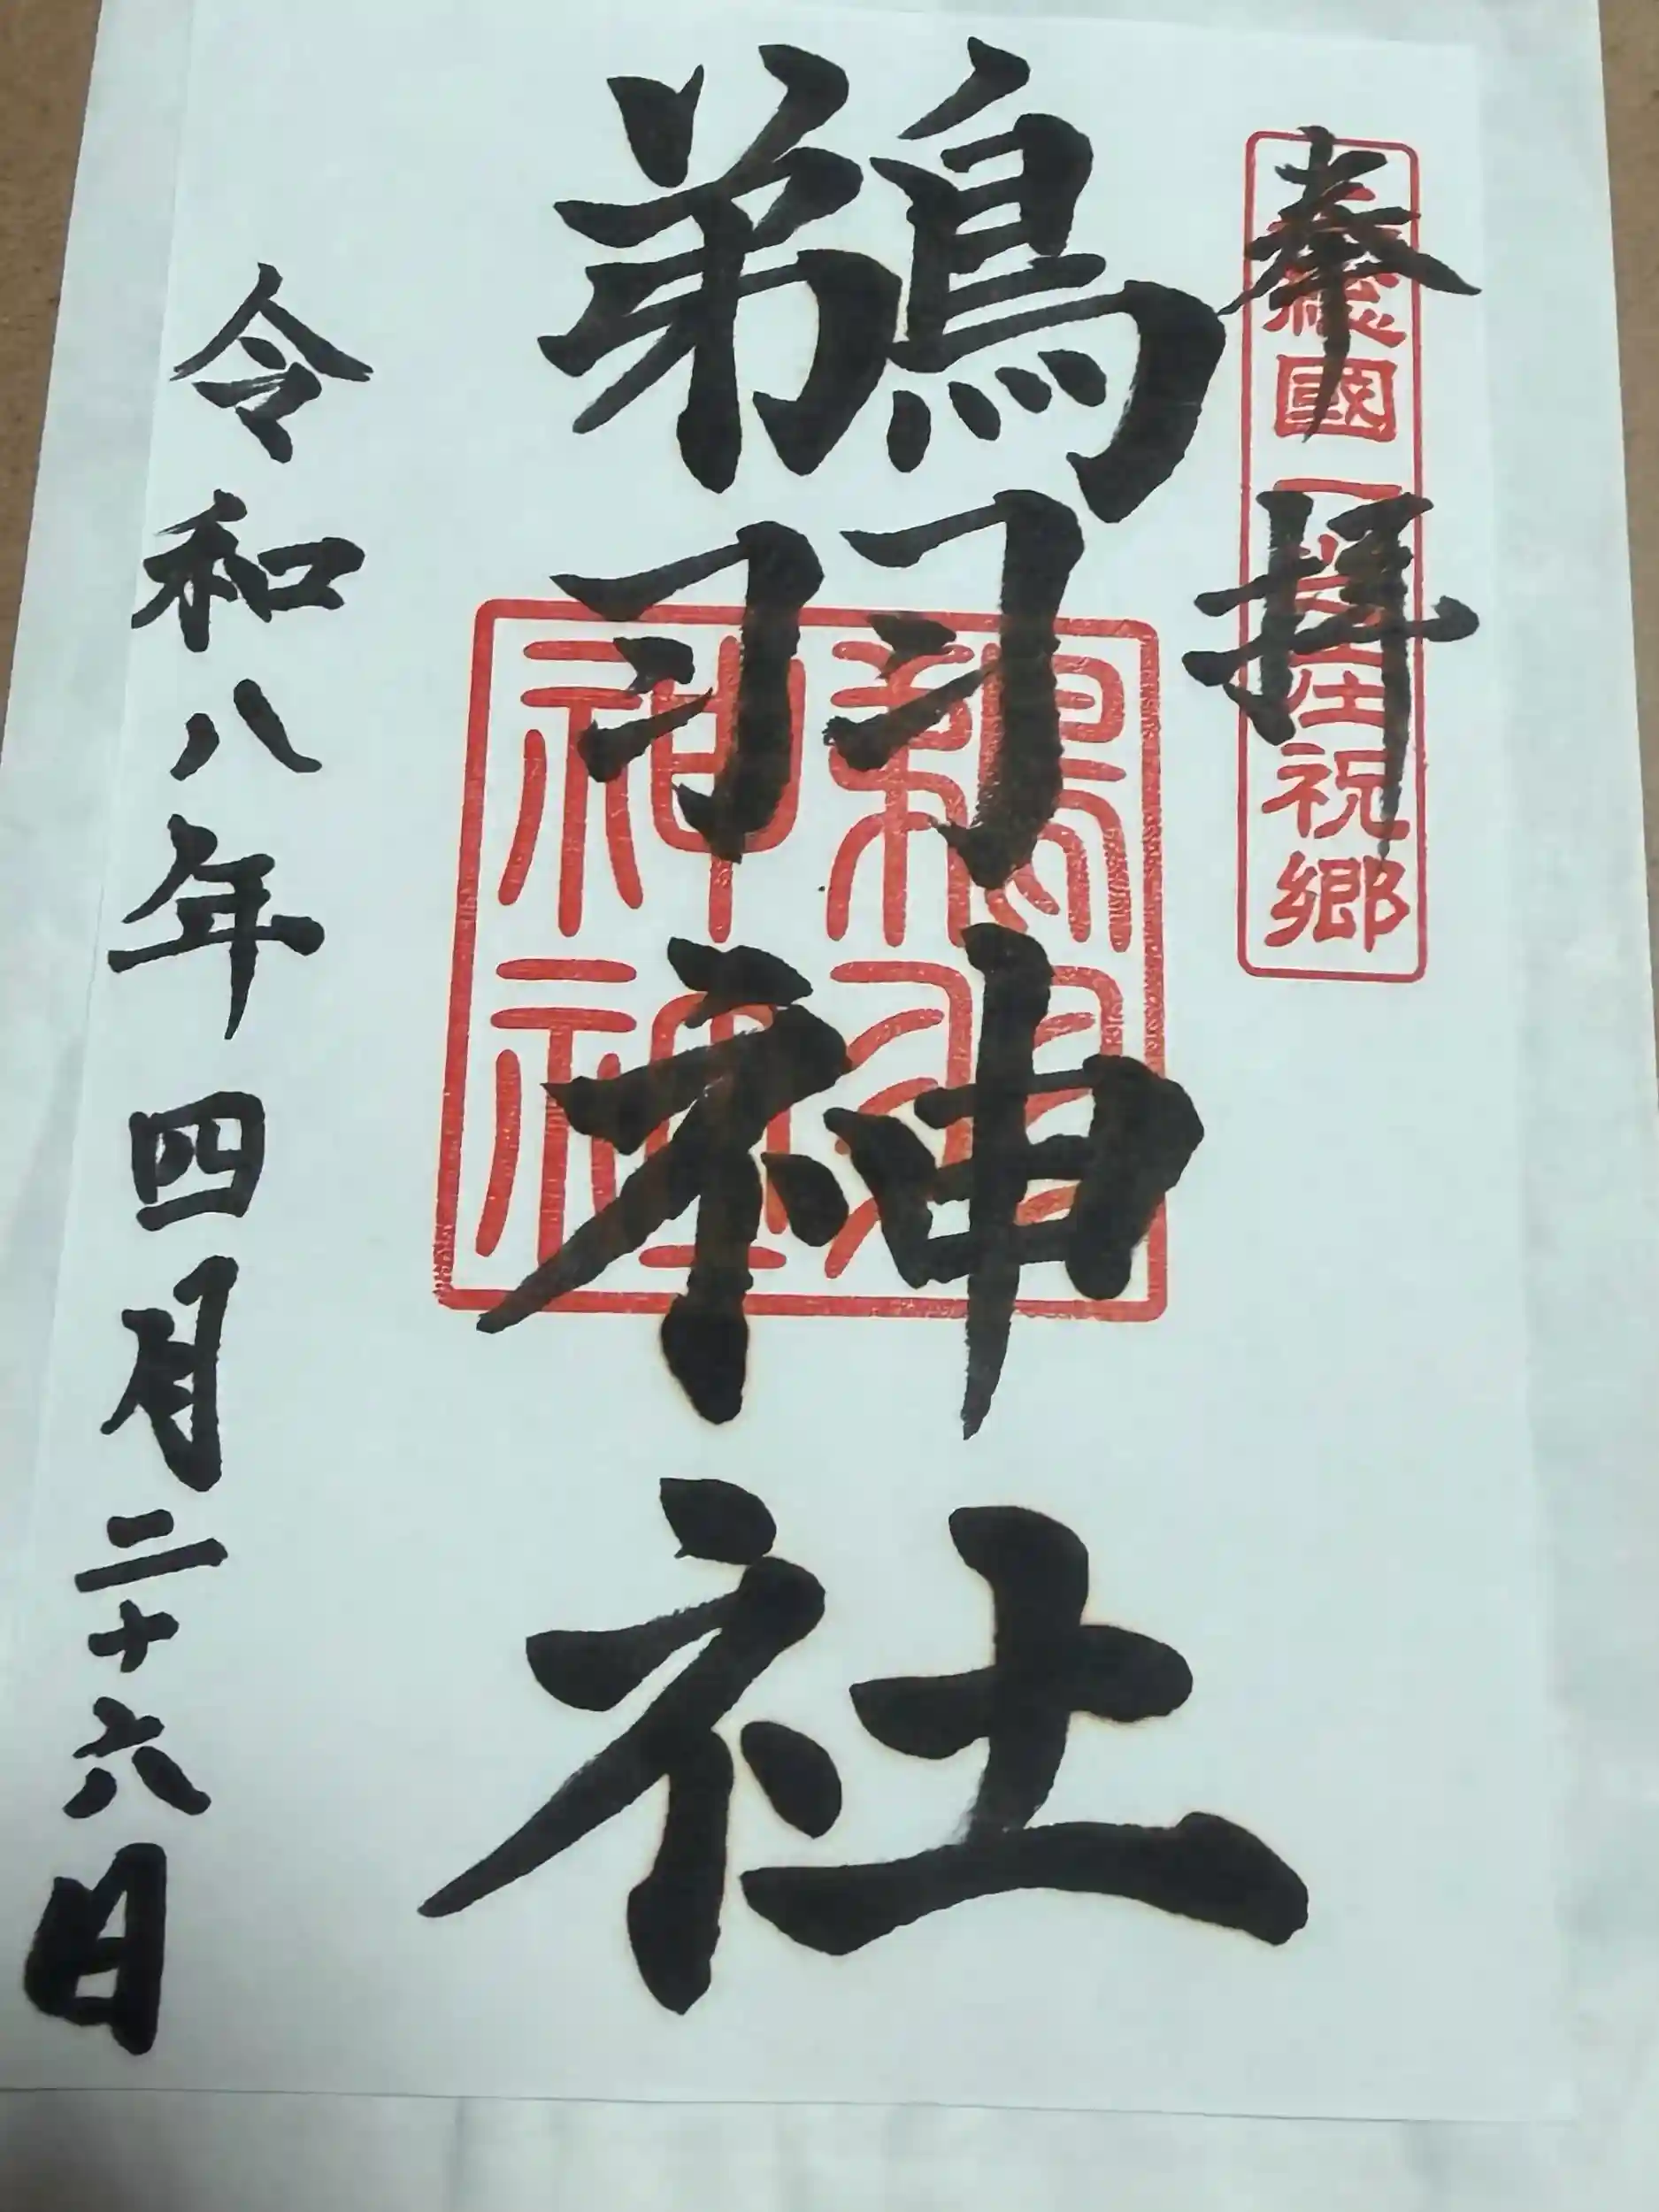 奉拝
総國
祝郷
鵜羽神社
鵜羽
神社
令和八年四月二十六日